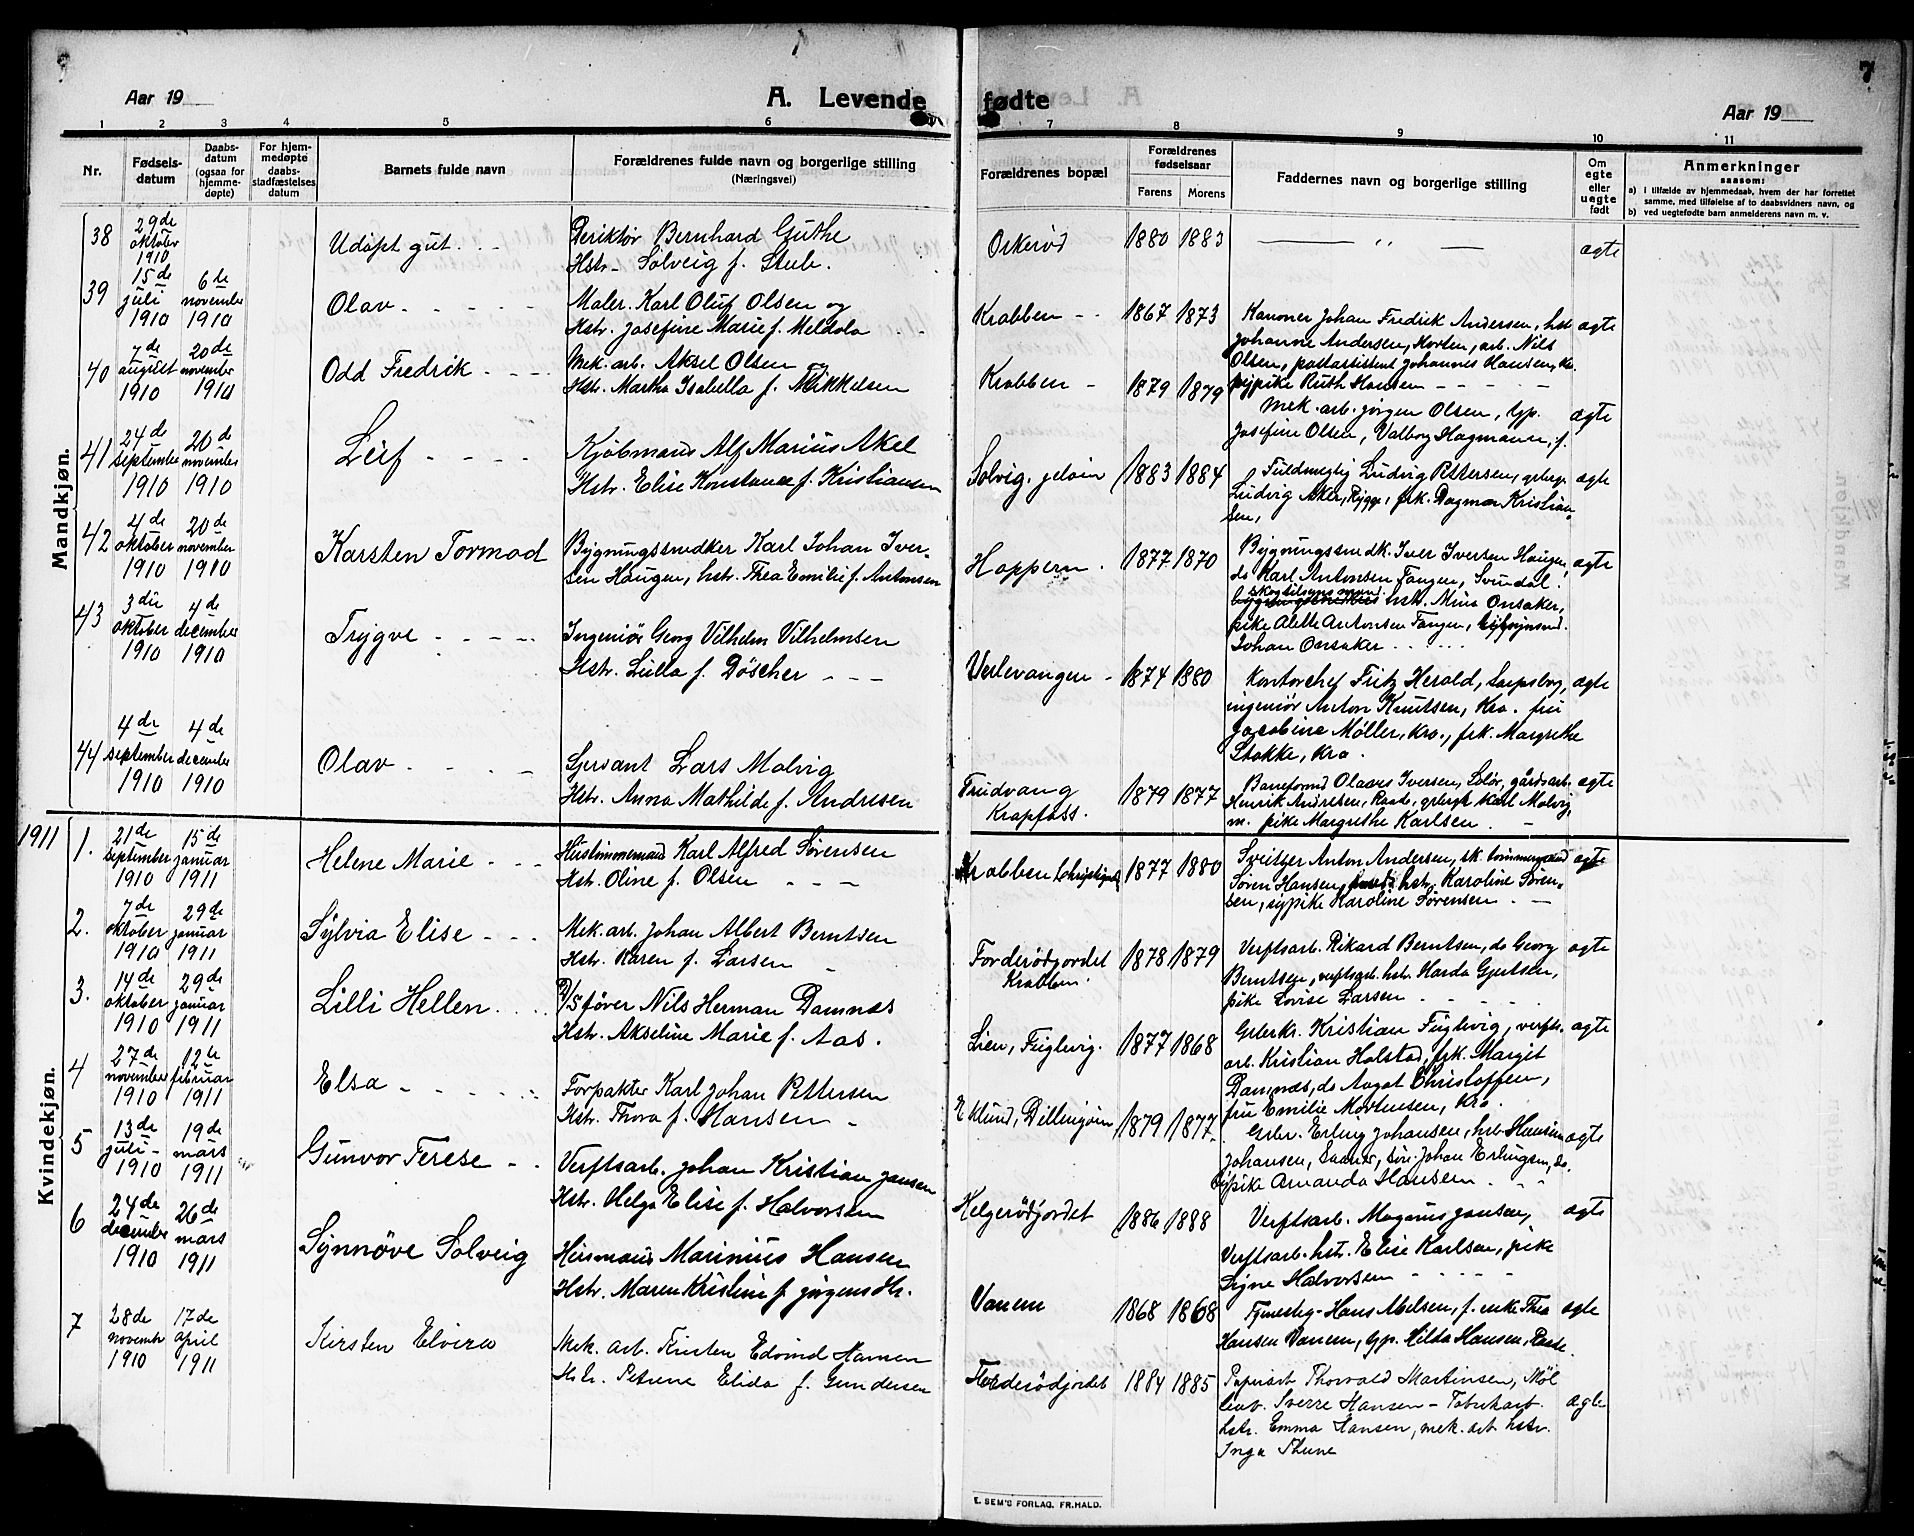 7
Aar 19
A. Levende fødte
Aar 19
1 2 3 4 5 6 7 8 9 10 11
Nr.
Fødsels-
datum
Daabs-
datum
(ogsaa for
hjemme-
døpte)
For hjem-
medøpte
daabs-
stadfæstelses
datum
Barnets fulde navn
Forældrenes fulde navn og borgerlige stilling
(Næringsvei)
Forældrenes bopæl
Forældrenes
fødselsaar
Farens Morens
Faddernes navn og borgerlige stilling
Om
egte
eller
uegte
født
Anmerkninger
saasom:
a) i tilfælde av hjemmedaab, hvem der har forrettet
samme, med tilføielse af to daabsvidners navn, og
b) ved uegtefødte barn anmelderens navn m. v.
Mandkjøn.
38
29de
oktober
1910
Udøpt gut. - -
Deriktør Bernhard Guthe
Hstr. Solveig f. Stub.
Orkerød
1880 1883
— „ —
ægte
39
15de
juli
1910
6te
november
1910
Olav - - - - -
Maler. Karl Oluf Olsen og
Hstr. Josefine Marie f. Meldola - -
Krabben - -
1867 1873
Kanoner Johan Fredrik Andersen, hst
Johanne Andersen, Horten, arb. Nils
Olsen, postassistent Johannes Hansen, ds.
sypike Ruth Hansen - - - - -
ægte
40
7de
august
1910
20de
november
1910
Odd Fredrik - - -
Mek. arb. Aksel Olsen
Hstr. Martha Isabella f. Mikkelsen
Krabben -
1879 1879
Mek. arb. Jørgen Olsen, Gp.
Josefine Olsen, Valborg Hagmann, f.
ægte
41
24de
september
1910
20de
november
1910
Leif - - - -
Kjøbmand Alf Marius Akel
Hstr. Elise Konstance f. Kristiansen
Solvig, Jeløin
1883 1884
Fuldmegtig Ludvig Pettersen, grbrgr.
Ludvig Aker, Rygge, frk. Dagmar Kristian-
sen,
ægte
42
4de
oktober
1910
20de
november
1910
Karsten Tormod
Bygningssnedker Karl Johan Iver-
sen Haugen, hstr. Thea Emilie f. Antonsen
Hoppern.
1877 1870
Bygningssnedk. Iver Iversen Haugen,
ds Karl Antonsen Tangen, Svindal.
hstr. Mina Onsaker,
pike Alette Antonsen Tangen,
Johan Onsaker - - - -
ægte
43
3die
oktober
1910
4de
december
1910
Trygve - - - -
Ingeniør Georg Vilhelm Vilhelmsen
Hstr. Lulla f. Döscher - - -
Verlevangen -
1874 1880
Kontorchef Fritz Herald, Sarpsborg,
ingeniør Anton Knutsen, Kra. fru
Jacobine Møller, Kra., frk. Margrethe
Stokke, Kra.
ægte
44
4de
september
1910
4de
december
1910
Olav - - - -
Sjersant Lars Molvig
Hstr. Anna Mathilde f. Andresen
Trudvang
Krapfoss.
1879 1877
Baneformd Olaves Iversen, Solør, gårdsarb.
Henrik Andresen, Raade, grbrgr Karl Molvig,
m. pike Margrethe Karlsen. -
ægte
1911
Kvindekjøn.
1.
21de
september
1910
15de
januar
1911
Helene Marie - - -
Hustømmermand Karl Alfred Sørensen
Hstr. Oline f. Olsen - - -
Krabben
1877 1880
Sveitser Anton Andersen, sk. tømmermand
Søren Hansen, hstr. Karoline Søren-
sen, sypike Karoline Sørensen - -
ægte
2.
7de
oktober
1910
29de
januar
1911
Sylvia Elise - - -
Mek. arb. Johan Albert Berntsen
Hstr. Karen f. Larsen -
Forderødjordet
Krabben.
1878 1879
Verftsarb. Rikard Berntsen, ds Georg
Berntsen, verftsarb. hstr. Harda Gjertsen,
pike Lovise Larsen - - - -
ægte
3.
14de
oktober
1910
29de
januar
1911
Lilli Hellen. . . .
D/S fører Nils Herman Damnæs
Hstr. Akseline Marie f. Aas.
Lien, Fuglevig.
1877 1868
Grbrkr. Kristian Fuglevig, verfts-
arb. Kristian Halstad, frk. Margit
Damnæs, ds Aagot Christoffersen,
fru Emilie Mortensen, Kra.
ægte
4
27de
november
1910
12te
februar
1911
Elsa - - - - -
Forpakter Karl Johan Pettersen
Hstr. Thora f. Hansen -
Eklund, Dillingøien
1879 1877
Grbr. Erling Johansen, hstr Hansine
Johansen, Johan Erlingsen, ds.
sypike Amanda Hansen. - -
ægte
5
13de
juli -
1910
19de
mars
1911
Gunvor Terese - -
Verftsarb. Johan Kristian Jansen
Hstr. Helga Elise f. Halvorsen
Helgerødjordet
1886 1888
Verftsarb. Magnus Jansen,
Verftsarb. hst. Elise Karlsen, pike
Signe Halvorsen - - - -
ægte
6
24de
december
1910
26de
mars
1911
Synnøve Solveig
Husmand Marinius Hansen
Hstr. Maren Kristine f. Jørgensdtr.
Vanem
1868 1868
Hans Abelsen, f. enke Thea
Hansen Vanem, Gp. Hilda Hansen, Raade.
ægte
7
28de
novemb
1910
17de
april
1911
Kirsten Elvira
Mek. arb. Kristen Edvind Hansen
H.str. Petrine Elida f. Gundersen
Forderødjordet
1884 1885
Papirarb Thorvald Martinsen, Møl
learb. Sverre Hansen - Fabrikarb.
hstr. Emma Hansen, mek. arb hstr.
Inga Thune
ægte
E. SEM'S FORLAG. FR.HALD.